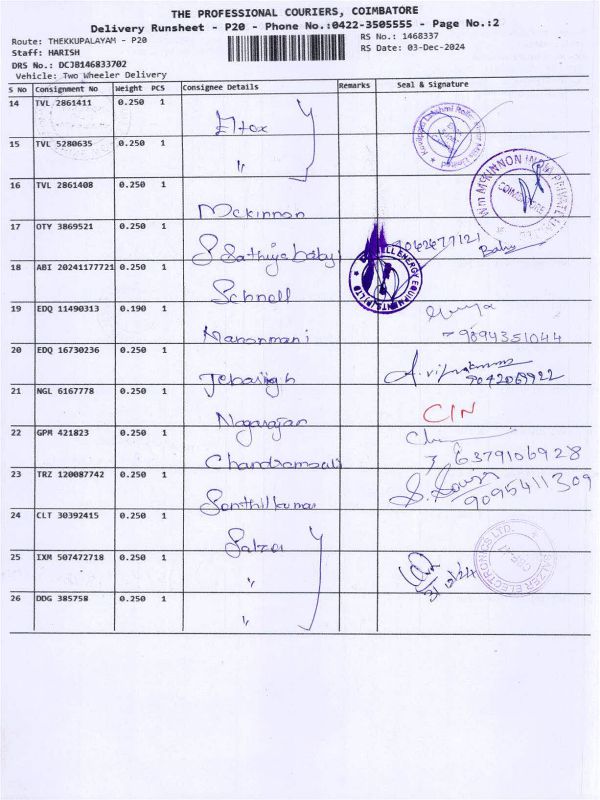 THE PROFESSIONAL COURIERS, COIMBATORE
Delivery Runsheet - P20 - Phone No.:0422-3505555 - Page No.:2
Route: THEKKUPALAYAM - P20
RS No.: 1468337
Staff: HARISH
RS Date: 03-Dec-2024
DRS No.: DCJB146833702
Vehicle: Two Wheeler Delivery
S No Consignment No Weight PCS Consignee Details Remarks Seal & Signature
14 TVL 2861411 0.250 1
15 TVL 5280635 0.250 1
"
16 TVL 2861408 0.250 1
Mckinnon
WM MCKINNON INDIA PRIVATE
COIMBATORE
17 OTY 3869521 0.250 1
S Sathiyababy
9062677121
Babu
18 ABI 20241177721 0.250 1
Schnell
SCHNELL ENERGY EQUIPMENTS (P) LTD
19 EDQ 11490313 0.190 1
Manonmani
9894351044
20 EDQ 16730236 0.250 1
9042069922
21 NGL 6167778 0.250 1
Nagarajan
CIN
22 GPM 421823 0.250 1
6379106928
23 TRZ 120087742 0.250 1
Senthilkumar
9095411309
24 CLT 30392415 0.250 1
Salzer
SALZER ELECTRONICS LTD.
CBE-47
25 IXM 507472718 0.250 1
"
3/12/24
26 DDG 385758 0.250 1
"